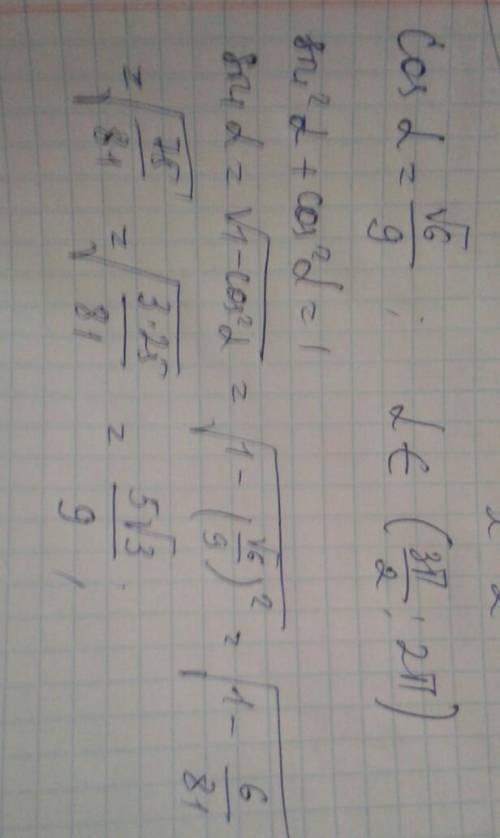 cos α = √6/9 ; α ∈ (3π/2 ; 2π)
sin²α + cos²α = 1
sin α = √(1-cos²α) = √(1 - (√6/9)²) = √(1 - 6/81)
= √(75/81) = √(3·25/81) = 5√3/9 ;